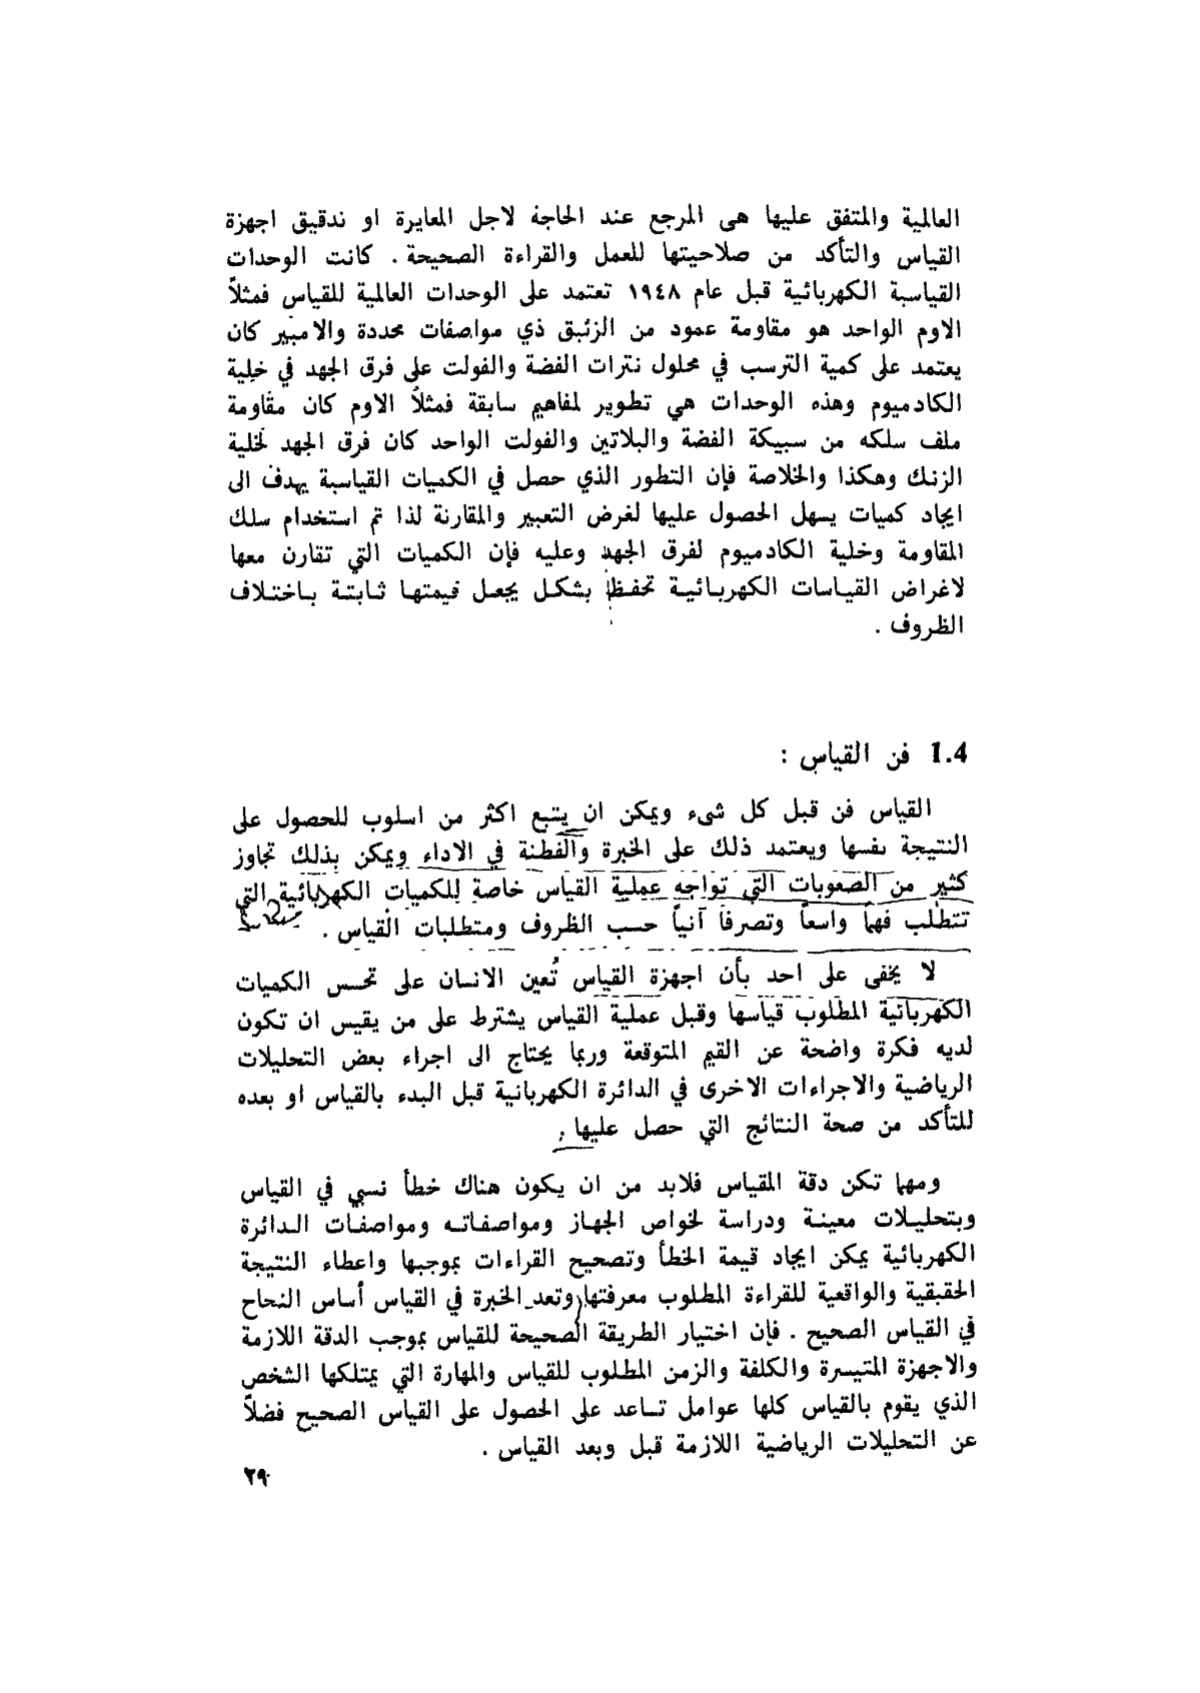 العالمية والمتفق عليها هى المرجع عند الحاجة لاجل المعايرة او تدقيق اجهزة
القياس والتأكد من صلاحيتها للعمل والقراءة الصحيحة . كانت الوحدات
القياسية الكهربائية قبل عام ١٩٤٨ تعتمد على الوحدات العالمية للقياس فمثلاً
الاوم الواحد هو مقاومة عمود من الزئبق ذي مواصفات محددة والامبير كان
يعتمد على كمية الترسب في محلول نترات الفضة والفولت على فرق الجهد في خلية
الكادميوم وهذه الوحدات هي تطوير لمفاهيم سابقة فمثلاً الاوم كان مقاومة
ملف سلكه من سبيكة الفضة والبلاتين والفولت الواحد كان فرق الجهد لخلية
الزنك وهكذا والخلاصة فإن التطور الذي حصل في الكميات القياسية يهدف الى
ايجاد كميات يسهل الحصول عليها لغرض التعبير والمقارنة لذا تم استخدام سلك
المقاومة وخلية الكادميوم لفرق الجهد وعليه فإن الكميات التي تقارن معها
لاغراض القياسات الكهربائية تحفظ بشكل يجعل قيمتها ثابتة باختلاف
الظروف .
1.4 فن القياس :
القياس فن قبل كل شىء ويمكن ان يتبع اكثر من اسلوب للحصول على
النتيجة نفسها ويعتمد ذلك على الخبرة والفطنة في الاداء ويمكن بذلك تجاوز
كثير من الصعوبات التي تواجه عملية القياس خاصة للكميات الكهربائية التي
تتطلب فهماً واسعاً وتصرفاً آنياً حسب الظروف ومتطلبات القياس .
لا يخفى على احد بأن اجهزة القياس تُعين الانسان على تحسس الكميات
الكهربائية المطلوب قياسها وقبل عملية القياس يشترط على من يقيس ان تكون
لديه فكرة واضحة عن القيم المتوقعة وربما يحتاج الى اجراء بعض التحليلات
الرياضية والاجراءات الاخرى في الدائرة الكهربائية قبل البدء بالقياس او بعده
للتأكد من صحة النتائج التي حصل عليها .
ومهما تكن دقة المقياس فلابد من ان يكون هناك خطأ نسبي في القياس
وبتحليلات معينة ودراسة لخواص الجهاز ومواصفاته ومواصفات الدائرة
الكهربائية يمكن ايجاد قيمة الخطأ وتصحيح القراءات بموجبها واعطاء النتيجة
الحقيقية والواقعية للقراءة المطلوب معرفتها وتعد الخبرة في القياس أساس النحاح
في القياس الصحيح . فإن اختيار الطريقة الصحيحة للقياس بموجب الدقة اللازمة
والاجهزة المتيسرة والكلفة والزمن المطلوب للقياس والمهارة التي يمتلكها الشخص
الذي يقوم بالقياس كلها عوامل تساعد على الحصول على القياس الصحيح فضلاً
عن التحليلات الرياضية اللازمة قبل وبعد القياس .
٢٩